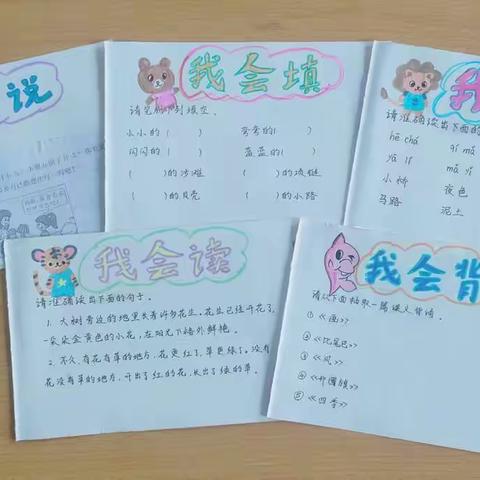 说
我会填
小小的（    ） 弯弯的（    ）
闪闪的（    ） 蓝蓝的（    ）
（    ）的沙滩 （    ）的项链
（    ）的贝壳 （    ）的小路
我
请准确读出下面的
hē chá
yā lí
小桥 夜色
马路 泥土
我会读
请准确读出下面的句子。
1. 大树旁边的地里长着许多花生，花生已经开花了，
一朵朵金黄色的小花，在阳光下格外鲜艳。
2. 不久，有花有草的地方，花更红了，草更绿了。没有
花没有草的地方，开出了红的花，长出了绿的草。
我会背
请从下面抽取一篇课文背诵。
① 《画》
② 《比尾巴》
③ 《风》
④ 《升国旗》
⑤ 《四季》